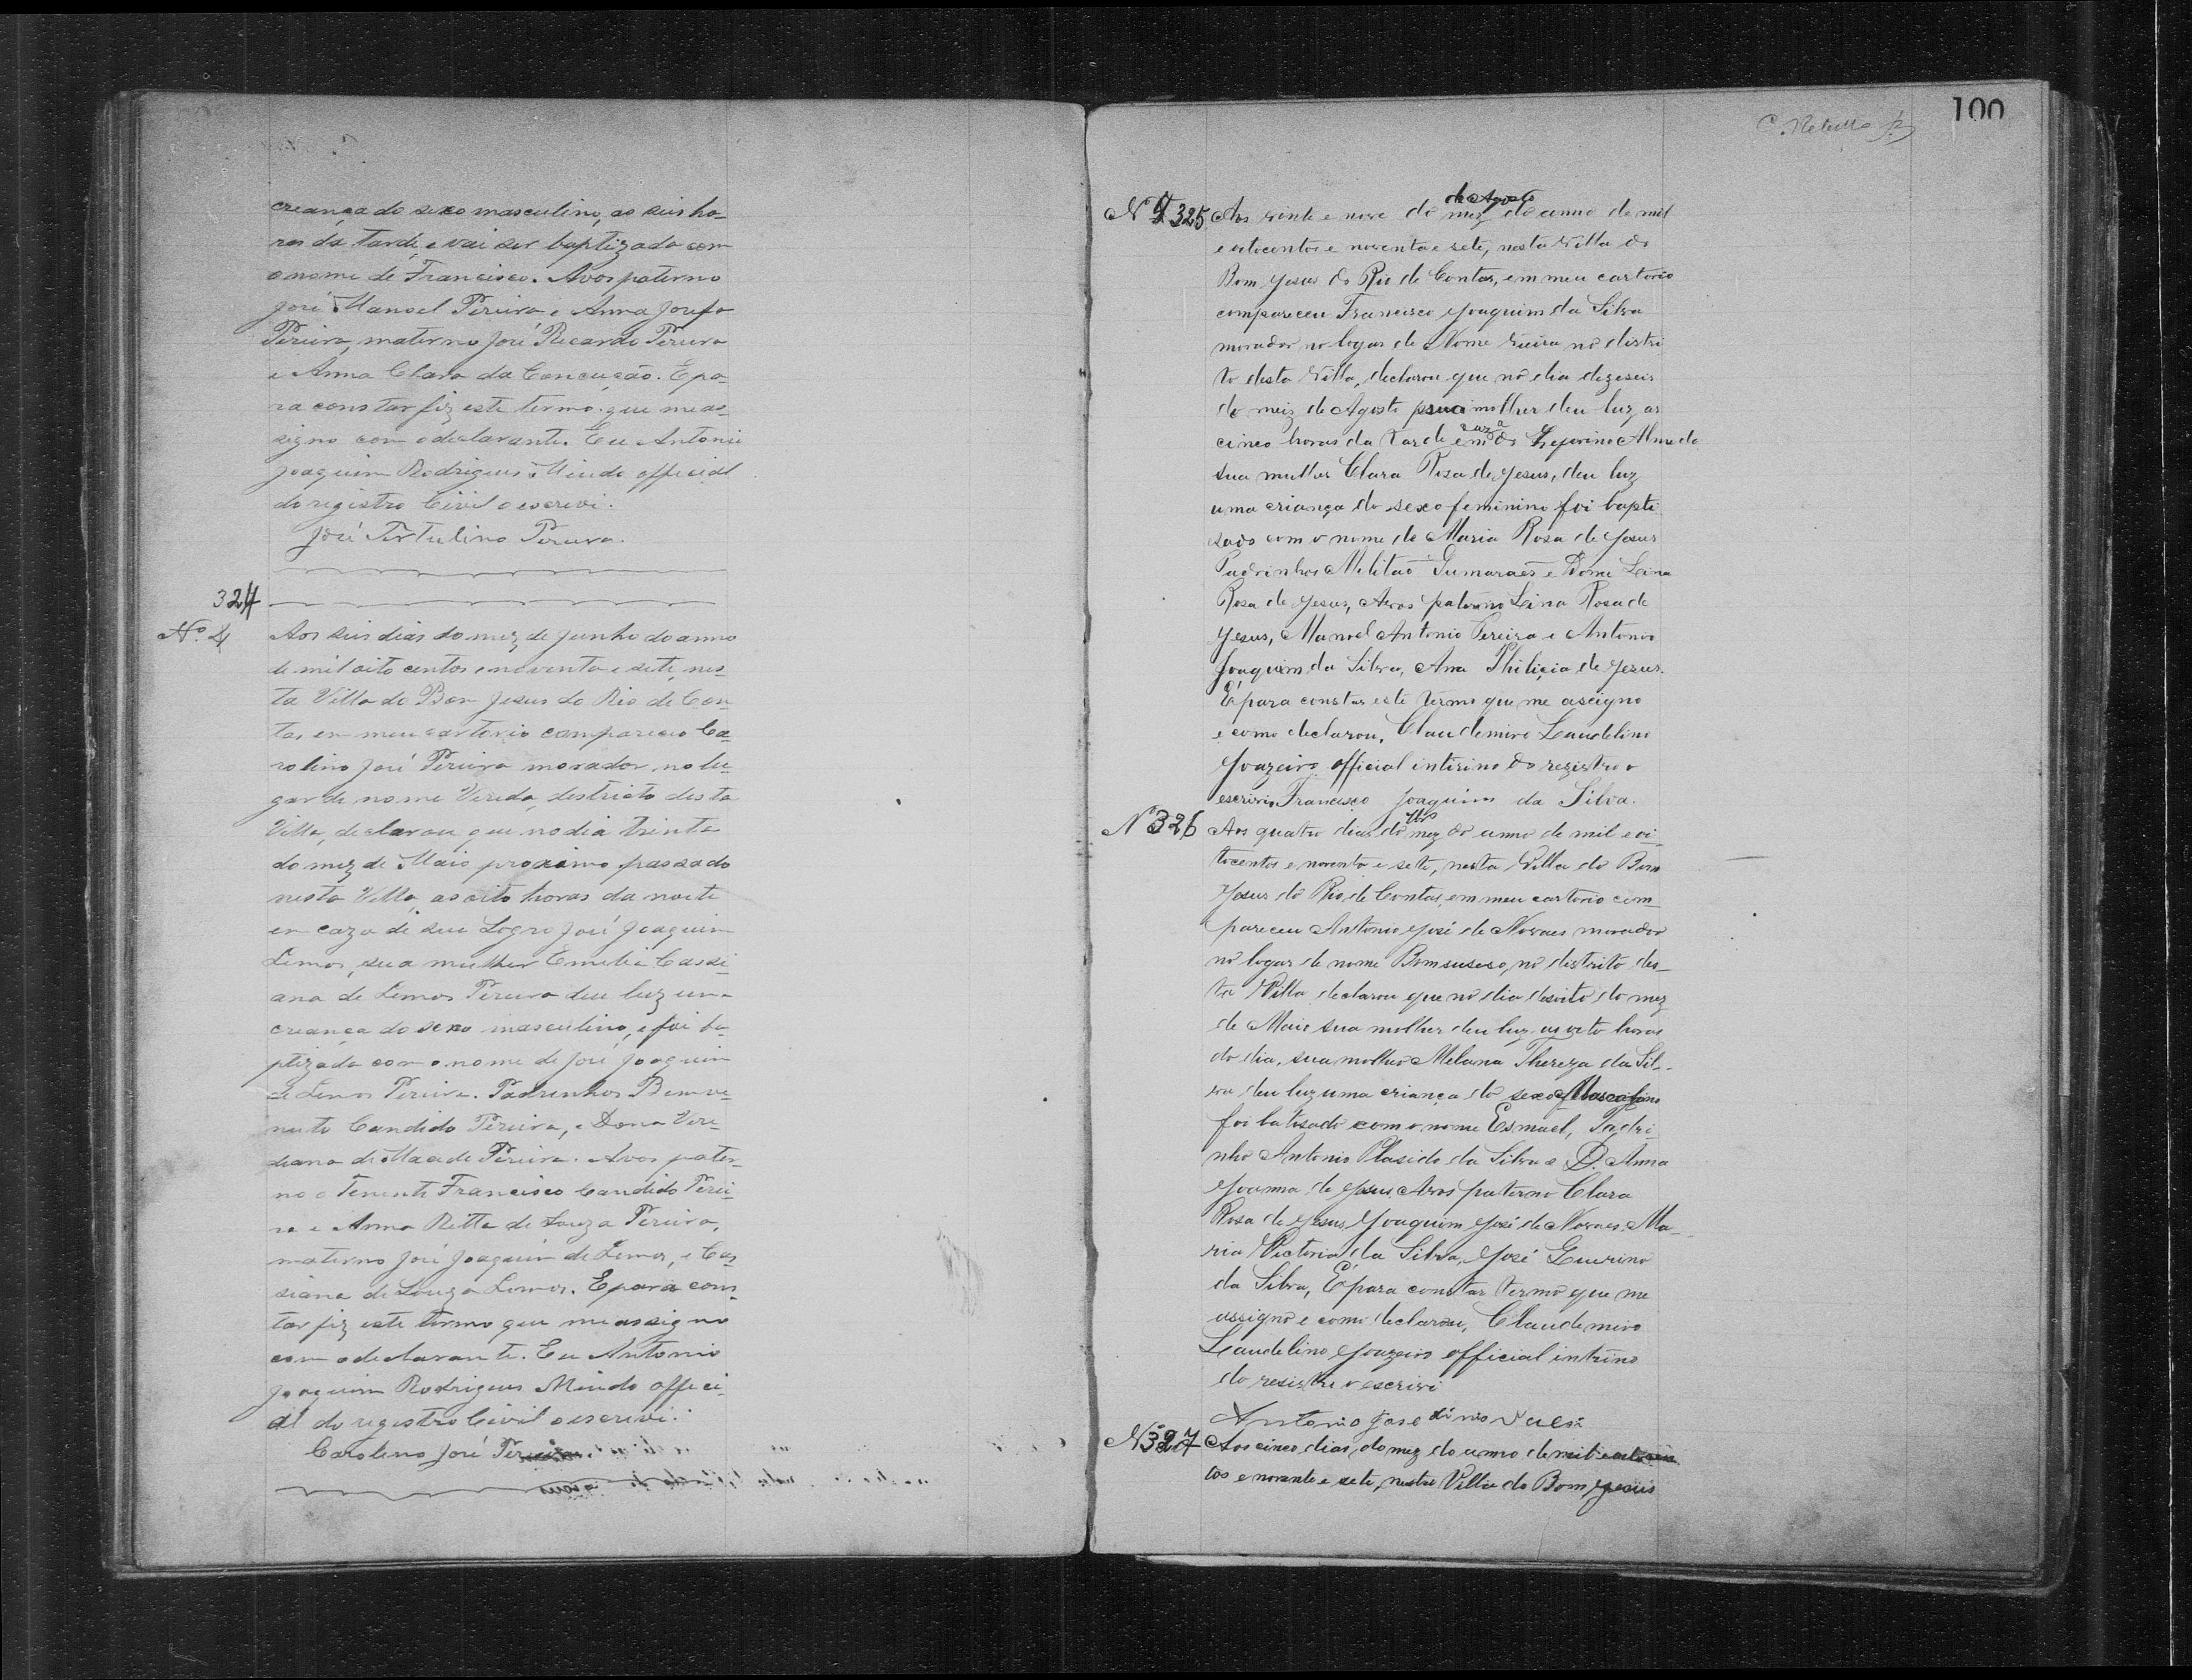 creança do sexo masculino, as seis ho-
ras da tarde, e vai ser baptizada com
o nome de Francisco. Avos paterno
José Manoel Pereira e Anna Josefa
Pereira, materno José Ricardo Pereira
e Anna Clara da Conceição. E pa-
ra constar fiz este termo que me as-
signo com o declarante. Eu Antonio
Joaquim Rodrigues Miudo official
do registro Civil o escrevi.
José Tertulino Pereira.
324
Nº 4
Aos seis dias do mez de Junho do anno
de mil oito centos e noventa e sete, nes-
ta Villa do Bom Jesus do Rio de Con-
tas em meu cartorio compareceo Ca-
rolino José Pereira morador no lu-
gar de nome Vereda, destricto desta
Villa, declarou que no dia trinta
do mez de Maio proximo passado
nesta Villa, as oito horas da noite
em caza de seu Sogro José Joaquim
Lemos, sua mulher Emilia Cassi-
ana de Lemos Pereira deu luz uma
creança do sexo masculino, e foi ba-
ptizada com o nome de José Joaquim
de Lemos Pereira. Padrinhos Bemve-
nuto Candido Pereira, e Dona Veri-
diana de Pereira. Avos pater-
no o Tenente Francisco Candido Perei-
ra e Anna Ritta de Souza Pereira,
materno José Joaquim de Lemos, e Cas-
siana de Souza Lemos. E para cons-
tar fiz este termo que me assigno
com o declarante. Eu Antonio
Joaquim Rodrigues Miudo offici-
al do registro Civil o escrevi.
Carolino José Pereira
100
C. Rebello
Nº 325
de Agosto
Aos vinte e nove do mez do anno de mil
e oitocentos e noventa e sete, nesta Villa do
Bom Jesus do Rio de Contas, em meu cartorio
compareceu Francisco Joaquim da Silva
morador no logar de Nome no distri
to desta Villa, declarou que no dia dezeseis
do meiz de Agosto sua molher deu luz as
caza
cinco horas da tarde em do Zeferino Almeda
sua mulher Clara Rosa de Jesus, deu luz
uma criança do sexo feminino foi bapti
sado com o nome de Maria Rosa de Jesus
Padrinhos Melitaõ Gumaraẽs e Dona Leina
Rosa de Jesus, Avos paterno Leina Rosa de
Jesus, Manoel Antonio Pereira e Antonio
Joaquim da Silva, Ana Philicia de Jesus.
E para constar este termo que me asigno
e como declarou, Claudemiro Laudelino
Joazeiro official interino do registro o
escrivi. Francisco Joaquim da Silva.
Nº 326
7bro
Aos quatro dias do mez do anno de mil e oi-
tocentos e noventa e sete, nesta Villa do Bom
Jesus do Rio de Contas, em meu cartorio com-
pareceu Antonio José de Novaes morador
no logar de nome Bomsuseso, no distrito des-
ta Villa declarou que no dia desoito do mez
de Maio sua molher deu luz as oito horas
do dia, sua molher Melana Thereza da Sil-
va deu luz uma criança do sexo Mascolino
foi batisado com o nome Esmael, Padri-
nho Antonio Plasido da Silva e D. Anna
Joanna de Jesus, Avos paterno Clara
Rosa de Jesus, Joaquim José de Novaes, Ma-
ria Victoria da Silva, José
da Silva, E para constar termo que me
assigno e como declarou, Claudemiro
Laudelino Joazeiro official intrino
do resistro o escrivi
Antonio José di no Vaesi
Nº 327
Aos cinco dias do mez do anno de mil e oitocen
tos e novente e sete, nesta Villa do Bom Jesuis